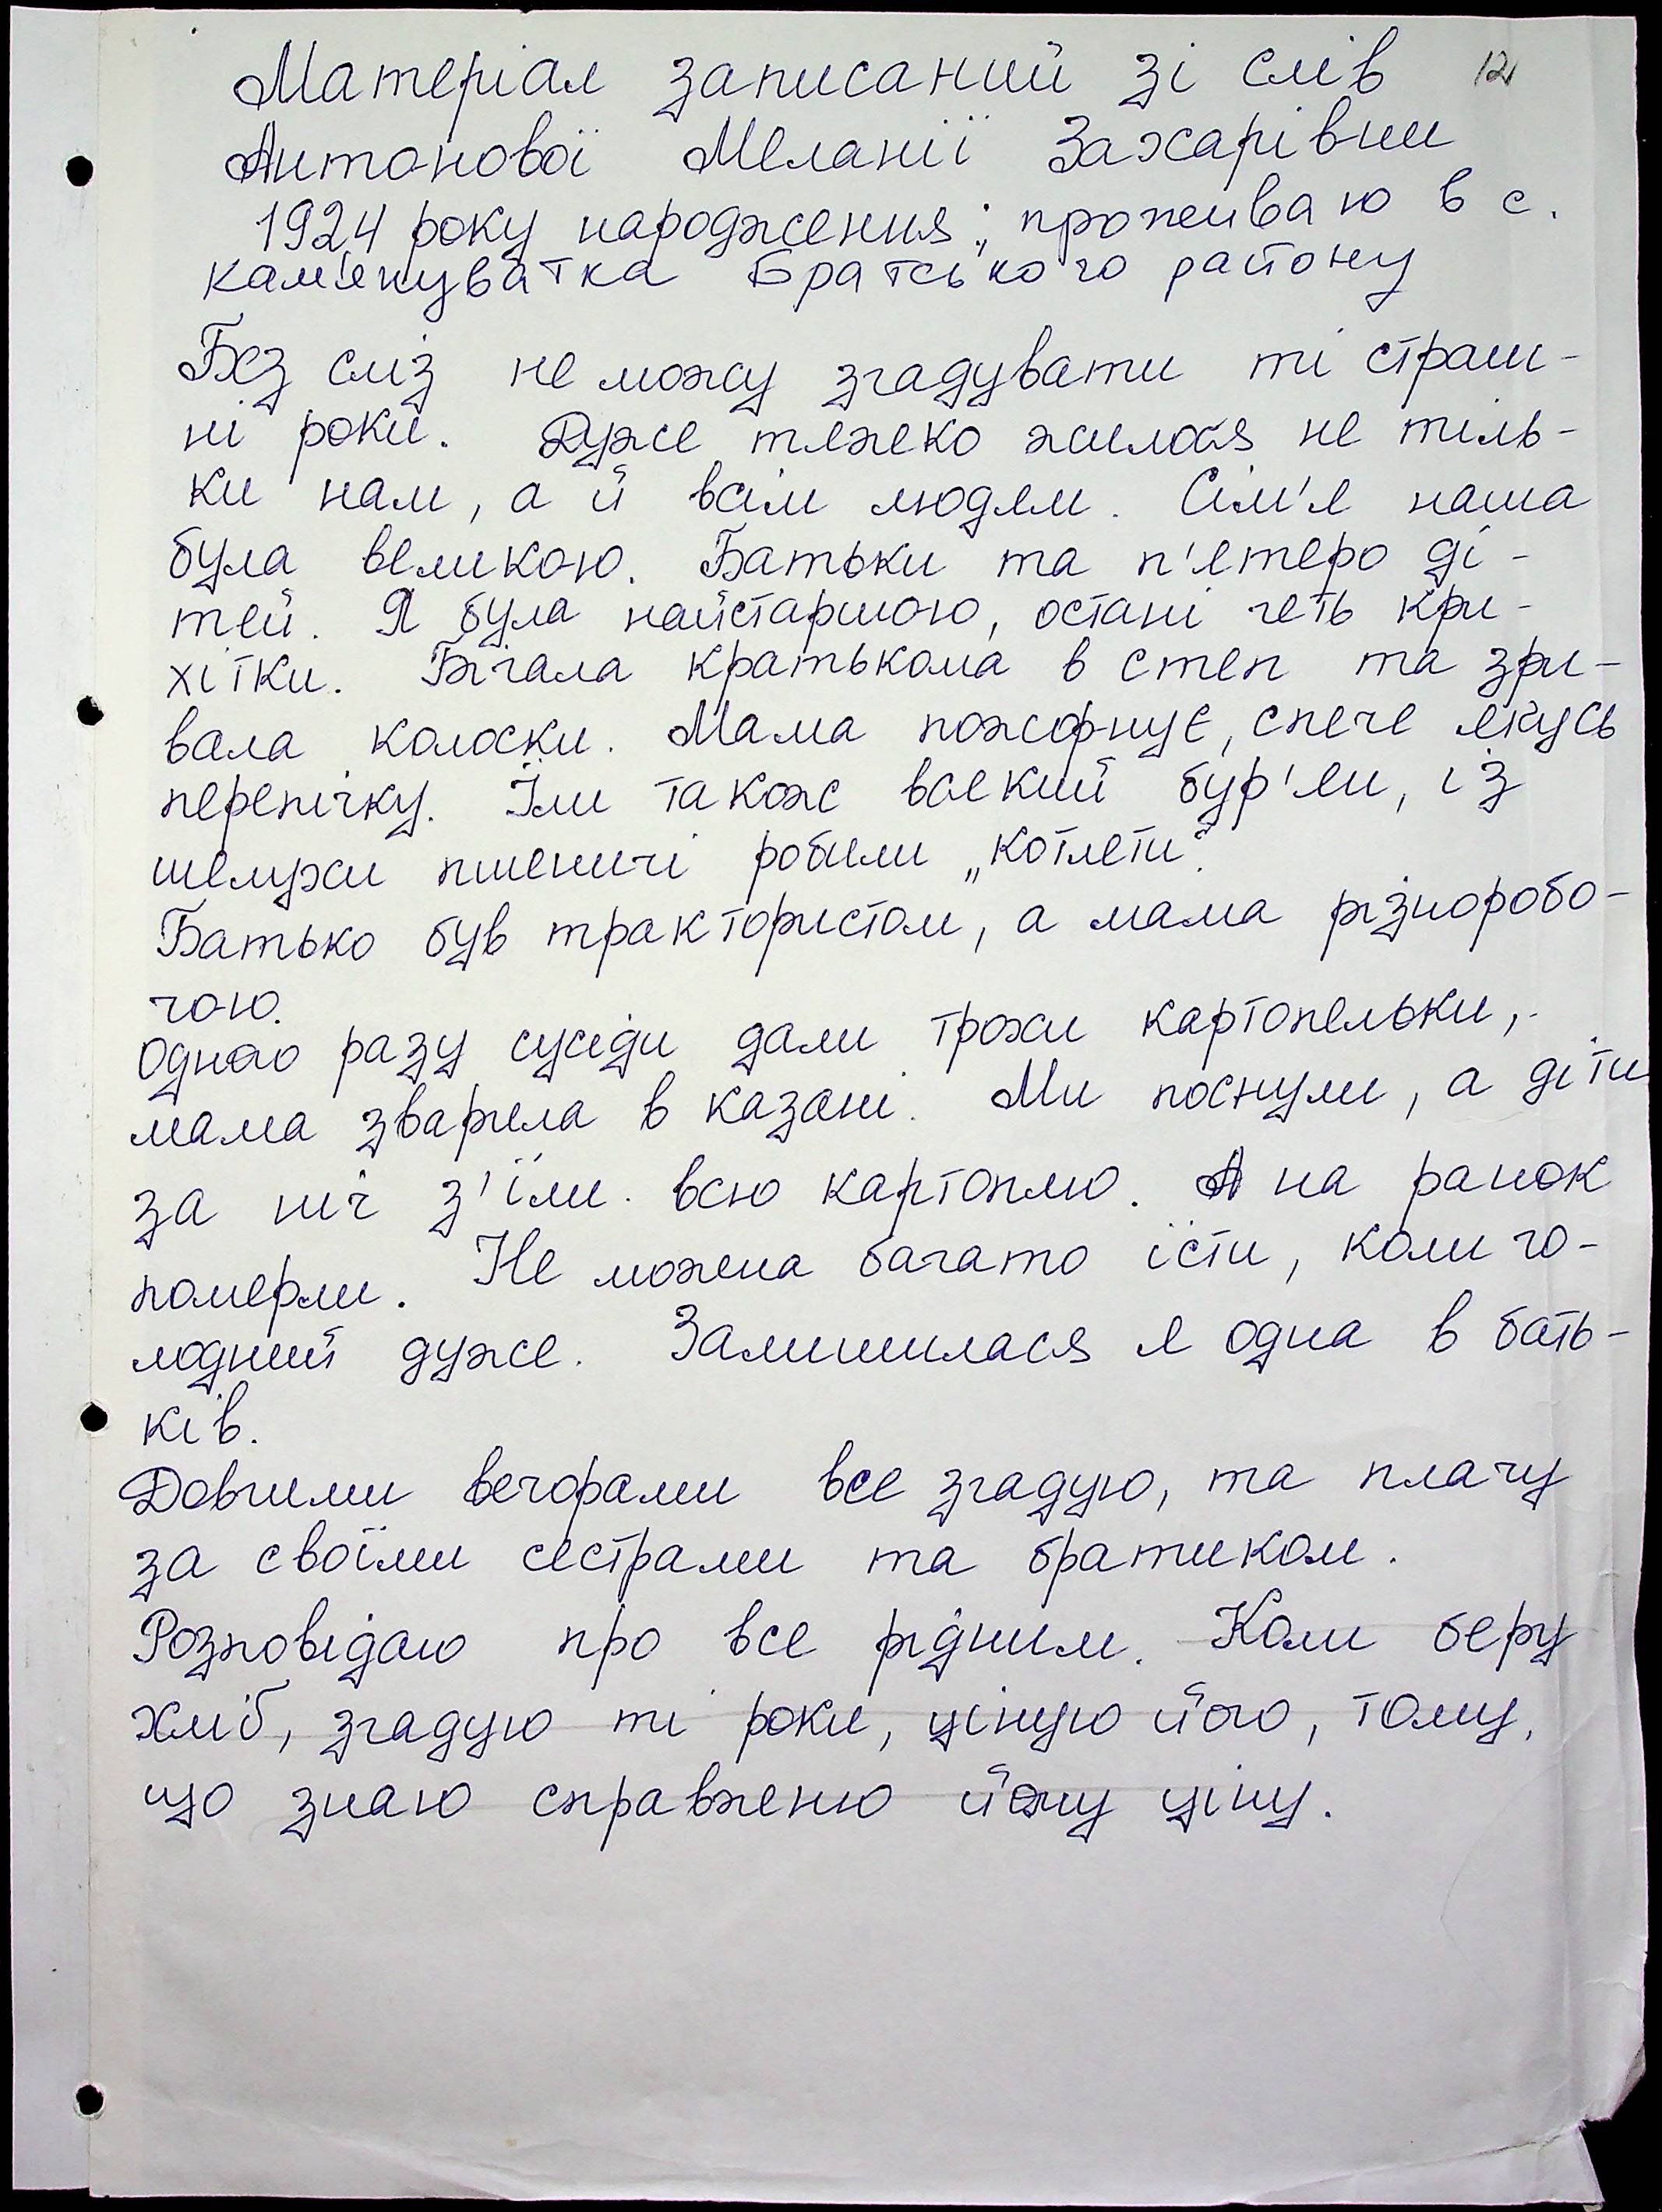 Матеріал записаний зі слів 12
Антонової Меланії Захарівни
1924 року народження; проживаю в с.
Кам'януватка Братського району
Без сліз не можу згадувати ті страш-
ні роки. Дуже тяжко жилося не тіль-
ки нам, а й всім людям. Сім'я наша
була великою. Батьки та п'ятеро ді-
тей. Я була найстаршою, остані геть кри-
хітки. Бігала кратькома в степ та зри-
вала колоски. Мама пожорнує, спече якусь
перепічку. Їли також всякий бур'ян, із
шелухи пшеничі робили „котлети".
Батько був трактористом, а мама різноробо-
чою.
Одного разу сусіди дали трохи картопельки,
мама зварила в казані. Ми поснули, а діти
за ніч з'їли всю картоплю. А на ранок
померли. Не можна багато їсти, коли го-
лодний дуже. Залишилася я одна в бать-
ків.
Довгими вечорами все згадую, та плачу
за своїми сестрами та братиком.
Розповідаю про все рідним. Коли беру
хліб, згадую ті роки, ціную його, тому,
що знаю справжню йому ціну.